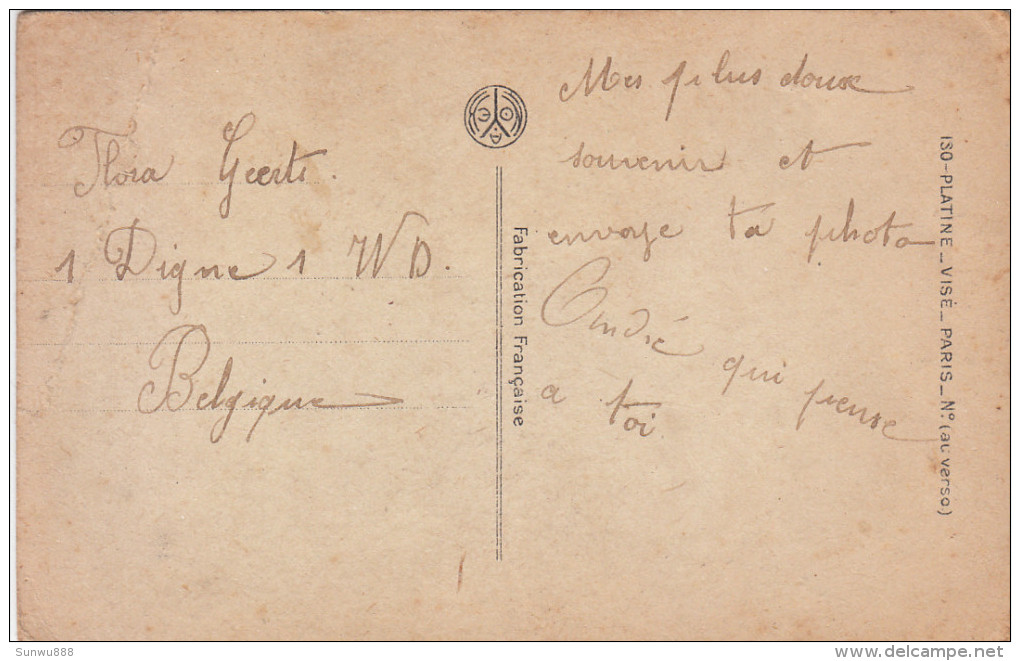 Flora Geerts.
1 Digne 1 WD.
Belgique
Mes plus doux
souvenir et
envoye ta photo
André qui pense
a toi
Fabrication Française
ISO-PLATINE_VISÉ_PARIS_Nº (au verso)
Sunwu888
www.delcampe.net